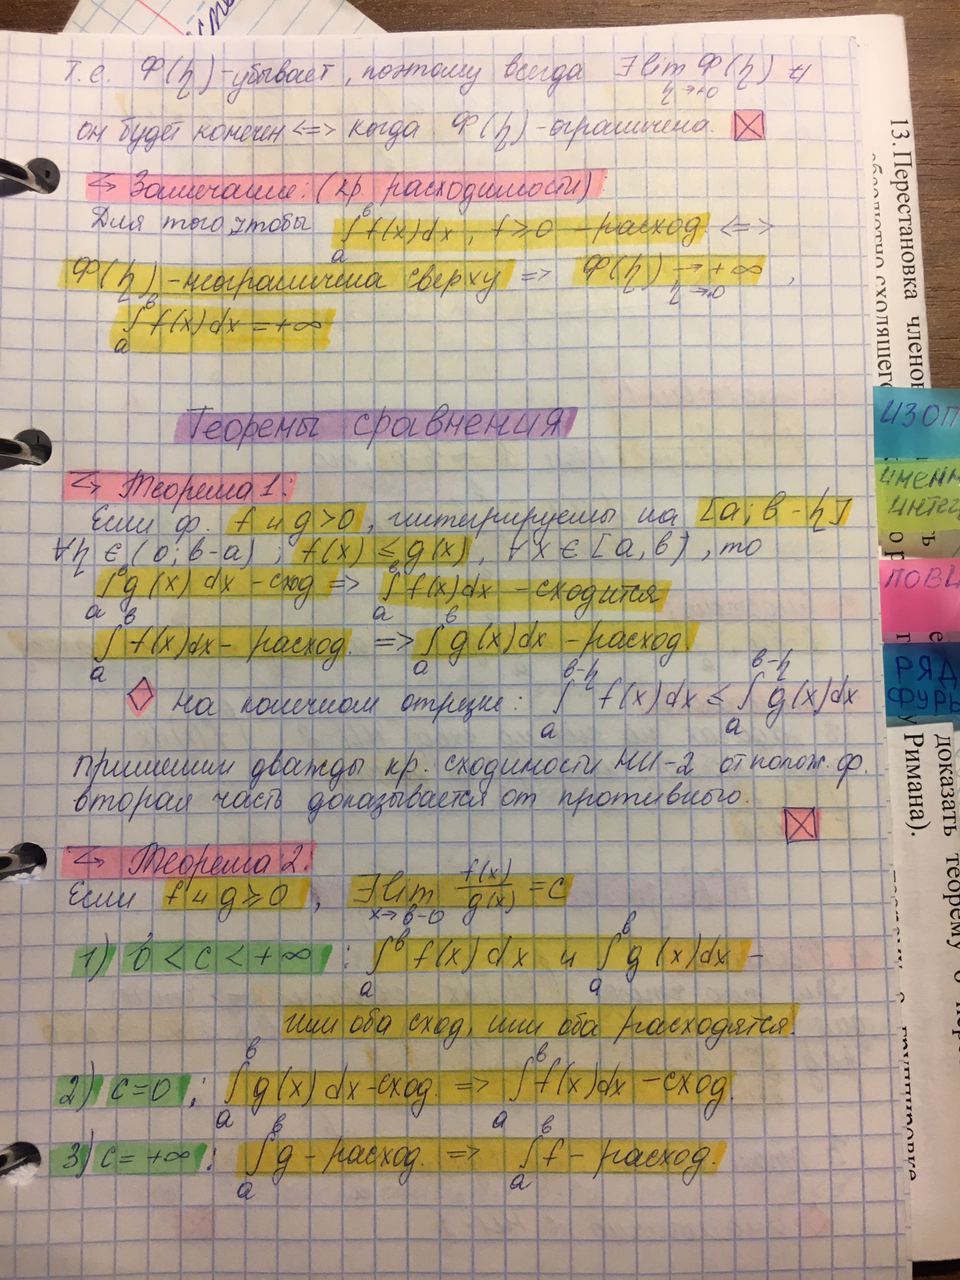 т.е. Ф(η)-убывает, поэтому всегда ∃lim Ф(η) и
η→+0
он будет конечен <=> когда Ф(η)-ограничена.
Замечание: (кр. расходимости)
Для того, чтобы ∫ₐᵇ f(x)dx, f≥0 -расход <=>
Ф(η)-неограничена сверху => Ф(η) → +∞,
η→0
∫ₐᵇ f(x)dx=+∞
Теоремы сравнения
Теорема 1:
Если ф. f и g>0, интегрируемы на [a; в-η]
∀η ∈ (0; в-a); f(x) ≤ g(x), ∀x ∈ [a, в), то
∫ₐᵇ g(x)dx-сход => ∫ₐᵇ f(x)dx -сходится
∫ₐᵇ f(x)dx- расход. => ∫ₐᵇ g(x)dx -расход.
На конечном отрезке: ∫ₐᵇ⁻η f(x)dx ≤ ∫ₐᵇ⁻η g(x)dx
применим дважды кр. сходимости НИ-2 от полож. ф.
вторая часть доказывается от противного.
Теорема 2:
Если f и g≥0, ∃lim f(x)/g(x) =c
x→в-0
1) 0<c<+∞: ∫ₐᵇ f(x)dx и ∫ₐᵇ g(x)dx -
или оба сход, или оба расходятся.
2) c=0; ∫ₐᵇ g(x)dx-сход. => ∫ₐᵇ f(x)dx -сход.
3) c=+∞: ∫ₐᵇ g - расход. => ∫ₐᵇ f - расход.
13. Перестановка членов
сходящегося
доказать теорему о
Римана).
РЯД
ФУР